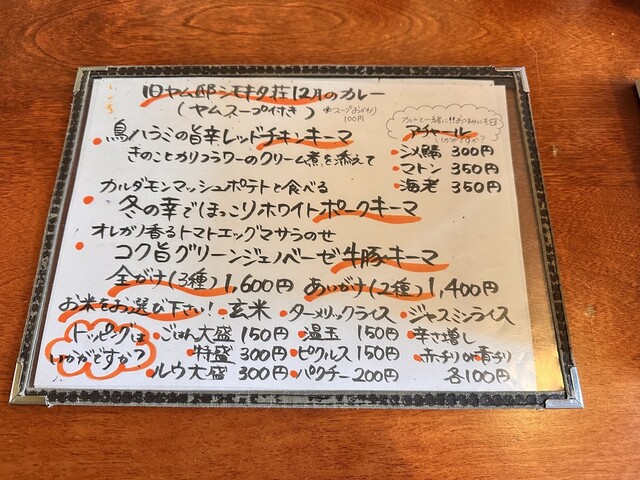 旧ヤム邸シモキタ荘12月のカレー
(ヤムスープ付き) スープおかわり100円
・鳥ハラミの旨辛レッドチキンキーマ
きのことカリフラワーのクリーム煮を添えて
カルダモンマッシュポテトと食べる
・冬の幸でほっこりホワイトポークキーマ
オレガノ香るトマトエッグマサラのせ
・コク旨グリーンジェノベーゼ牛豚キーマ
カレーと一緒に!!おつまみにも
いかがですか?
アチャール
・シメ鯖 300円
・マトン 350円
・海老 350円
全がけ(3種) 1,600円 あいがけ(2種) 1,400円
お米をお選び下さい! ・玄米 ・ターメリックライス ・ジャスミンライス
トッピングは
いかがですか?
・ごはん大盛 150円 ・温玉 150円 ・辛さ増し
特盛 300円 ・ピクルス 150円 ・赤チリor青チリ
・ルウ大盛 300円 ・パクチー 200円 各100円